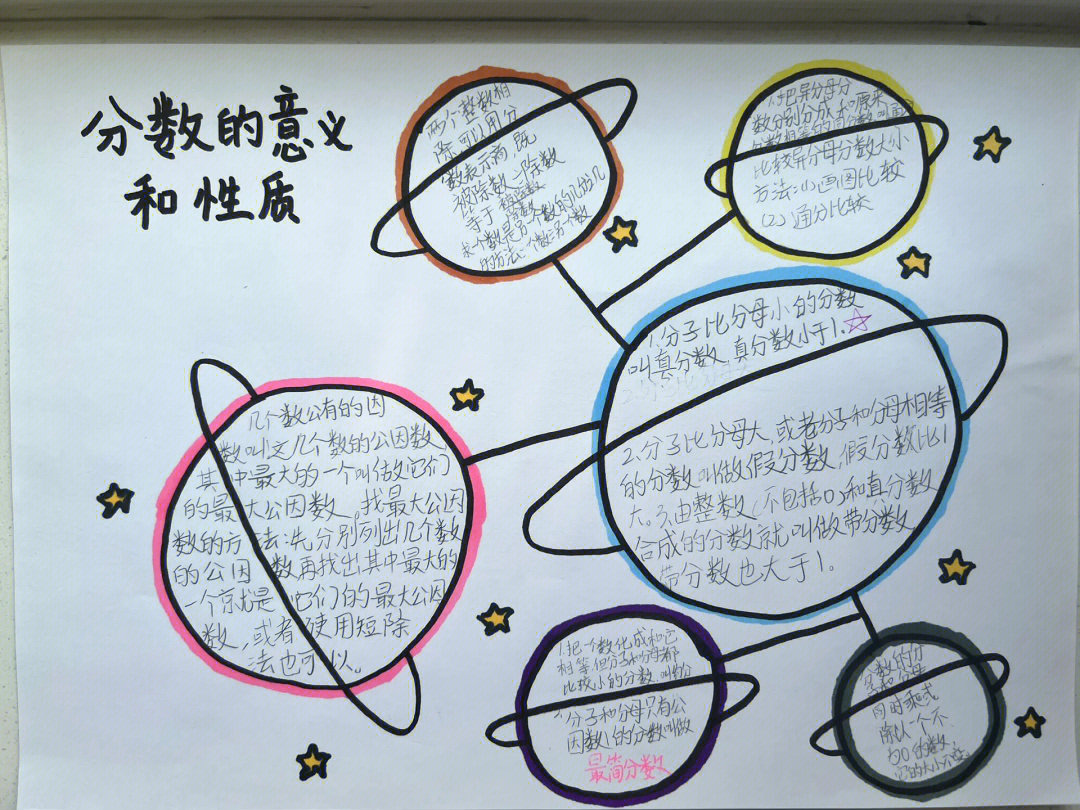 分数的意义
和性质
两个整数相
除,可以用分
数表示商,既
被除数÷除数
等于
求一个数是另一个数的几分几
的方法:一个数÷另一个数
1.把异分母分
数分别分成和原来
分数相等的同分数叫通
比较异分母分数大小
方法:(1)画图比较
(2)通分比较
1.分子比分母小的分数
叫真分数,真分数小于1.
2.分子比分母大,或者分子和分母相等
的分数叫做假分数,假分数比1
大。3.由整数(不包括0)和真分数
合成的分数就叫做带分数
带分数也大于1.
几个数公有的因
数叫这几个数的公因数,
其中最大的一个叫做它们
的最大公因数。找最大公因
数的方法:先分别列出几个数
的公因数再找出其中最大的
一个就是它们的最大公因
数,或者使用短除
法也可以。
1.把一个数化成和它
相等,但分子和分母都
比较小的分数,叫约分
2.分子和分母只有公
因数1的分数叫做
最简分数
分数的分
子和分母
同时乘或
除以一个不
为0的数,
它的大小不变。